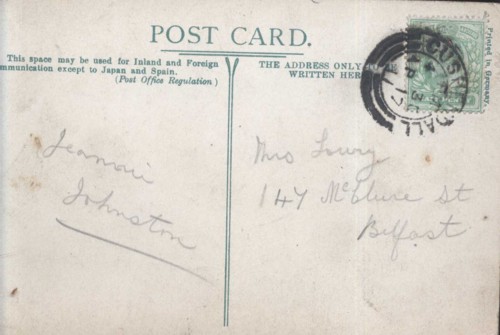 POST CARD.
This space may be used for Inland and Foreign
mmunication except to Japan and Spain.
(Post Office Regulation)
THE ADDRESS ONLY
WRITTEN HER
Printed in Germany.
CUSHENDALL
Jeannie
Johnston
Mrs Lowry
147 McClure St
Belfast